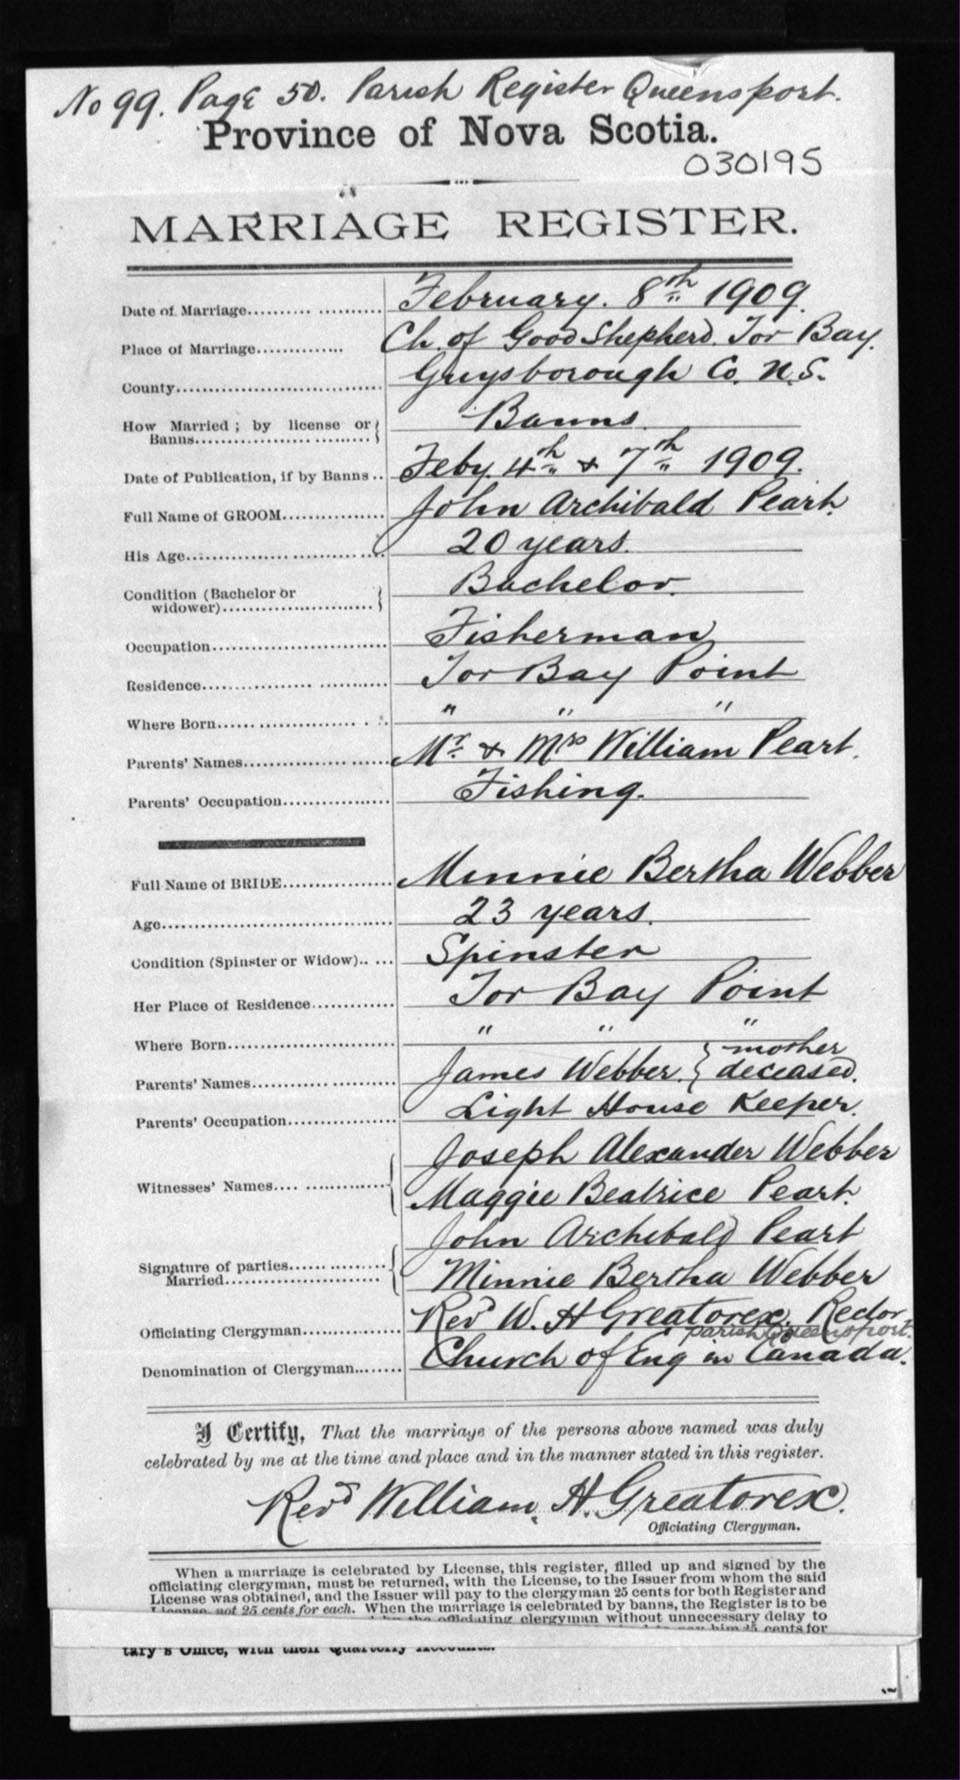 No 99. Page 50. Parish Register Queensport.
Province of Nova Scotia.
030195
MARRIAGE REGISTER.
Date of Marriage.................... February. 8th 1909.
Place of Marriage.............. Ch. of Good Shepherd. Tor Bay.
County.............................. Guysborough Co. N.S.
How Married; by license or Banns.................... Banns.
Date of Publication, if by Banns.. Feby. 4th & 7th 1909.
Full Name of GROOM............... John Archibald Peart.
His Age.............................. 20 years.
Condition (Bachelor or widower)...................... Bachelor.
Occupation.......................... Fisherman
Residence........................... Tor Bay Point
Where Born...................... " " "
Parents' Names..................... Mr. & Mrs William Peart.
Parents' Occupation................ Fishing.
Full Name of BRIDE................ Minnie Bertha Webber
Age.................................. 23 years.
Condition (Spinster or Widow)..... Spinster
Her Place of Residence............ Tor Bay Point
Where Born........................ " " "
Parents' Names.................... James Webber. } mother deceased.
Parents' Occupation................. Light House Keeper.
Witnesses' Names.................. Joseph Alexander Webber
Maggie Beatrice Peart.
Signature of parties Married.................... John Archibald Peart
Minnie Bertha Webber
Officiating Clergyman.............. Revd W. H Greatorex. Rector
parish Queensport.
Denomination of Clergyman....... Church of Eng in Canada.
I Certify, That the marriage of the persons above named was duly
celebrated by me at the time and place and in the manner stated in this register.
Revd William. H. Greatorex.
Officiating Clergyman.
When a marriage is celebrated by License, this register, filled up and signed by the
officiating clergyman, must be returned, with the License, to the Issuer from whom the said
License was obtained, and the Issuer will pay to the clergyman 25 cents for both Register and
License, not 25 cents for each. When the marriage is celebrated by banns, the Register is to be
officiating clergyman without unnecessary delay to
cents for
tary's Office, with their Quarterly Accounts.